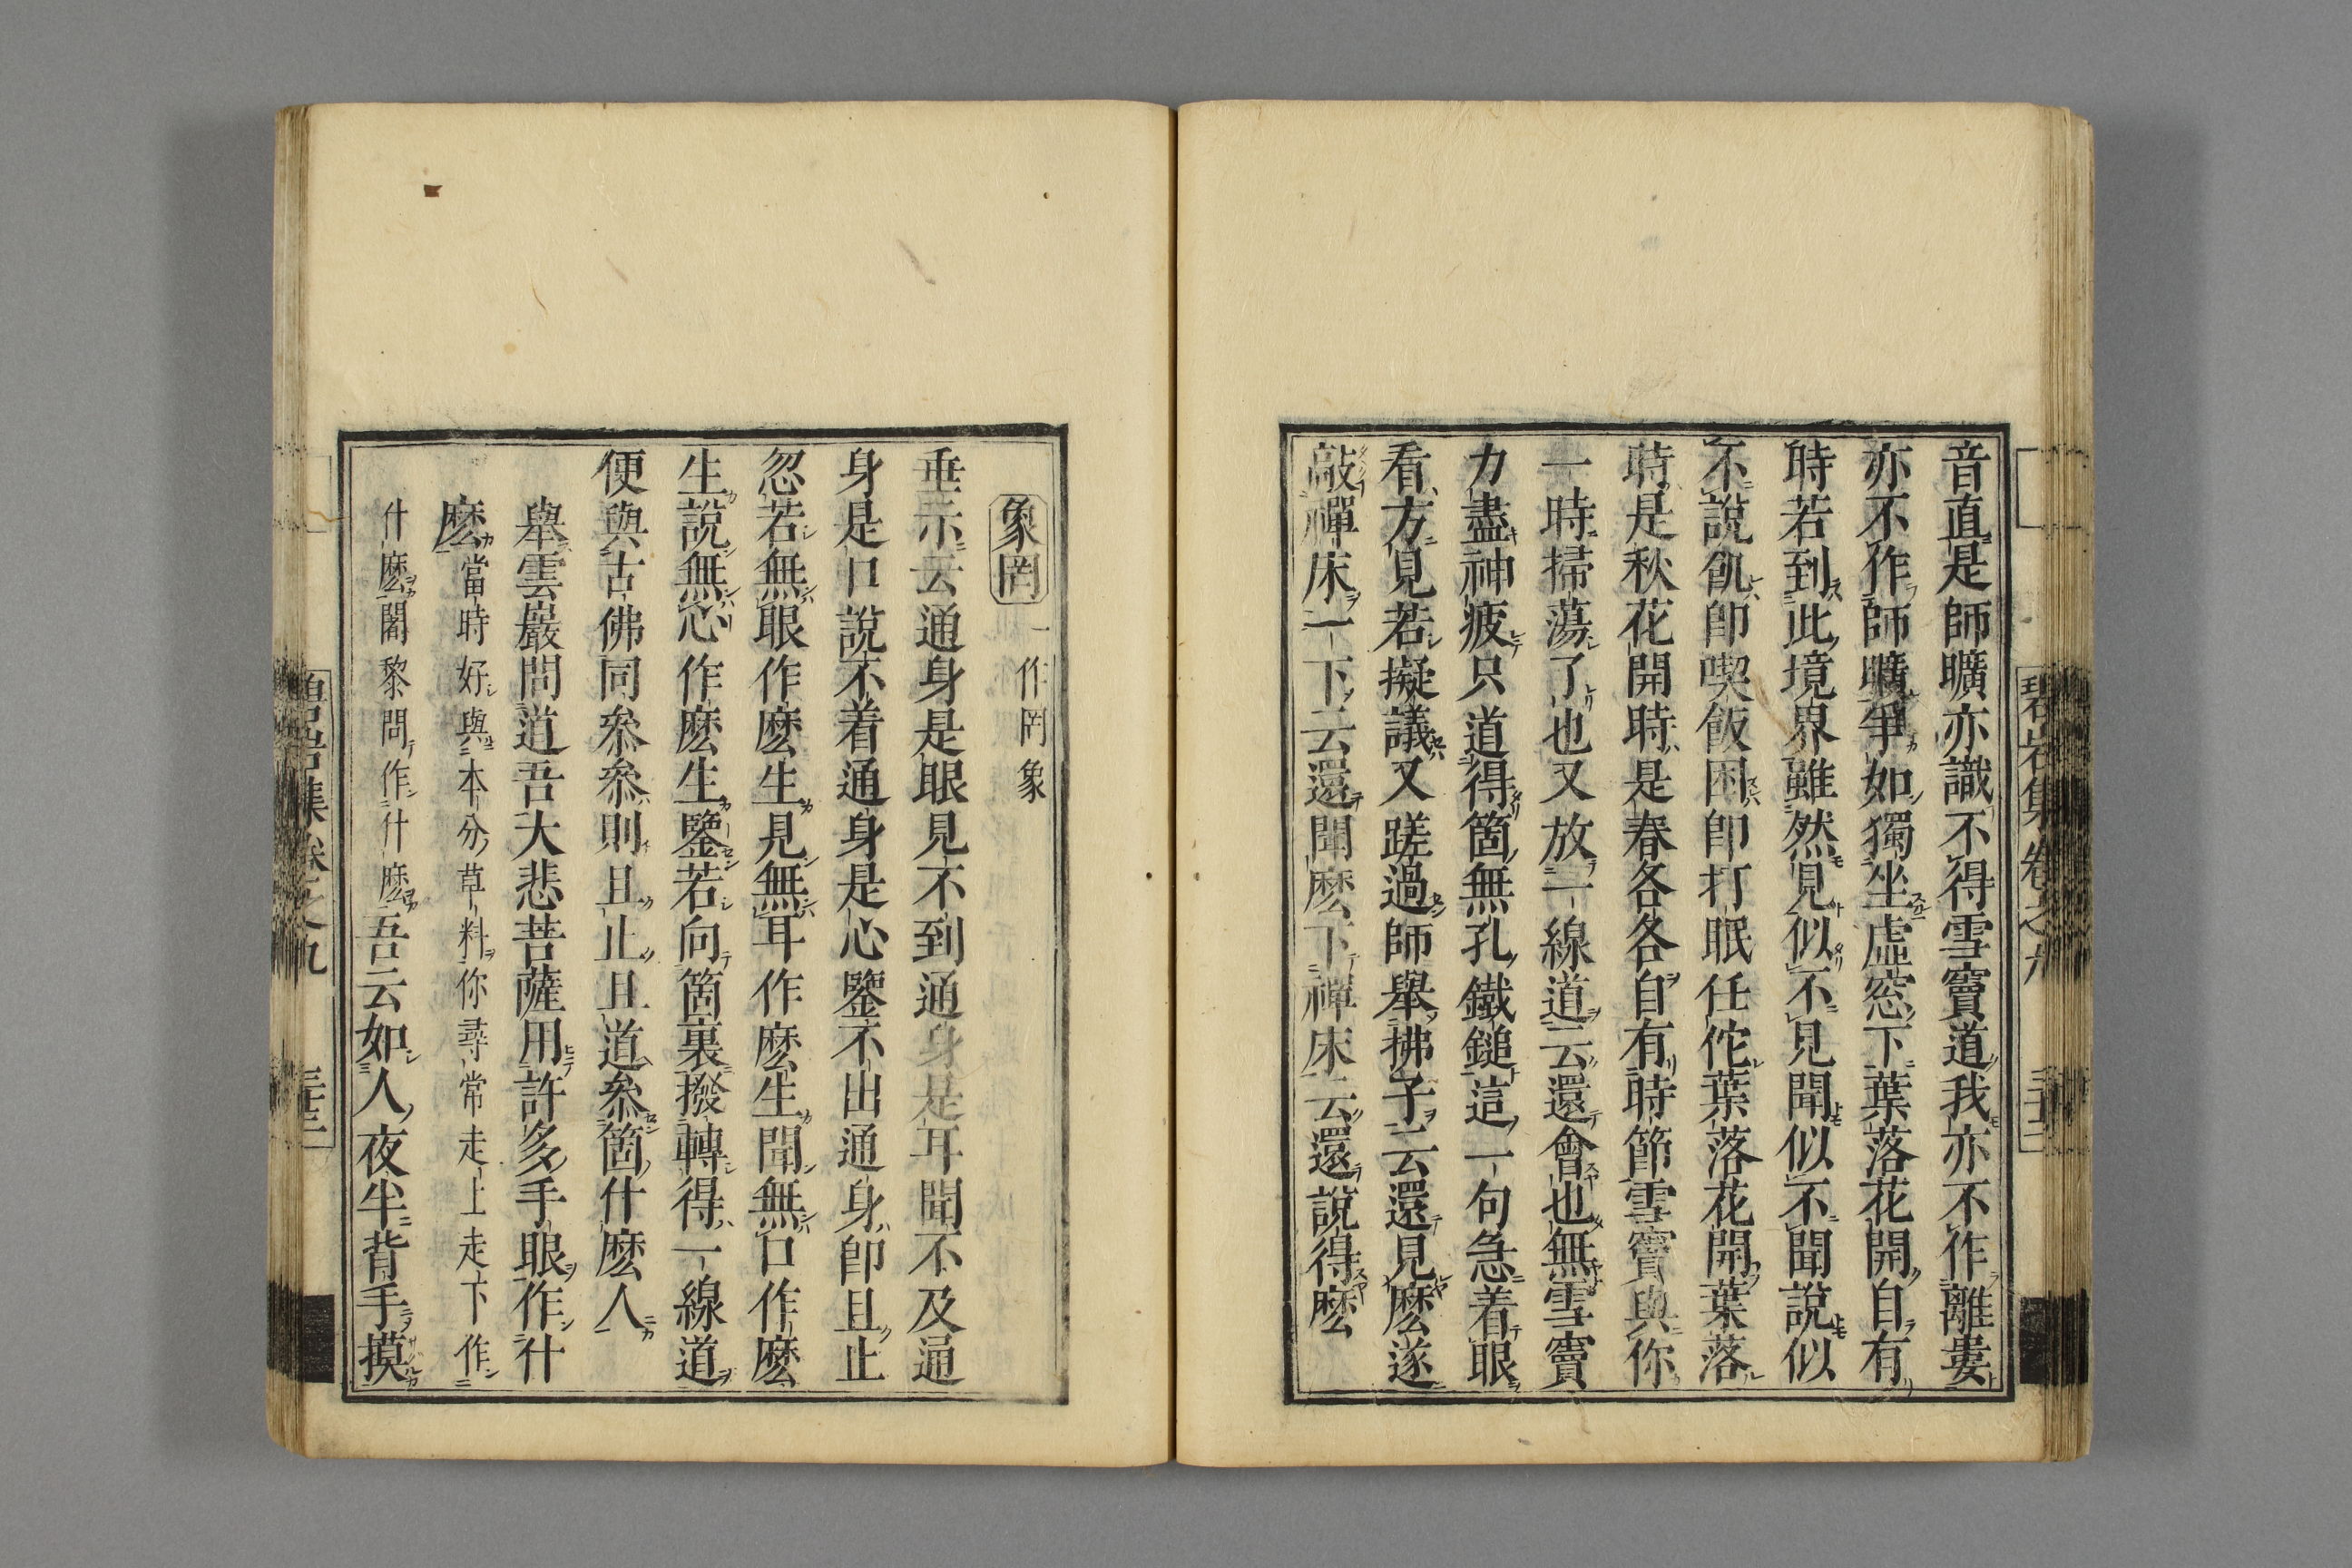 音直是師曠亦識不得雪竇道我亦不作離婁
亦不作師曠爭如獨坐虛窓下葉落花開自有
時若到此境界雖然見似不見聞似不聞說似
不說飢即喫飯困即打眠任佗葉落花開葉落
時是秋花開時是春各各自有時節雪竇與你
一時掃蕩了也又放一線道云還會也無雪竇
力盡神疲只道得箇無孔鐵鎚這一句急着眼
看方見若擬議又蹉過師舉拂子云還見麼遂
敲禪床一下云還聞麼下禪床云還說得麼
象罔 一作罔象
垂示云通身是眼見不到通身是耳聞不及通
身是口說不着通身是心鑒不出通身即且止
忽若無眼作麼生見無耳作麼生聞無口作麼
生說無心作麼生鑒若向箇裏撥轉得一線道
便與古佛同參參則且止且道參箇什麼人
舉雲巖問道吾大悲菩薩用許多手眼作什
麼 當時好與本分草料你尋常走上走下作
什麼闍黎問作什麼 吾云如人夜半背手摸
碧岩集卷之九